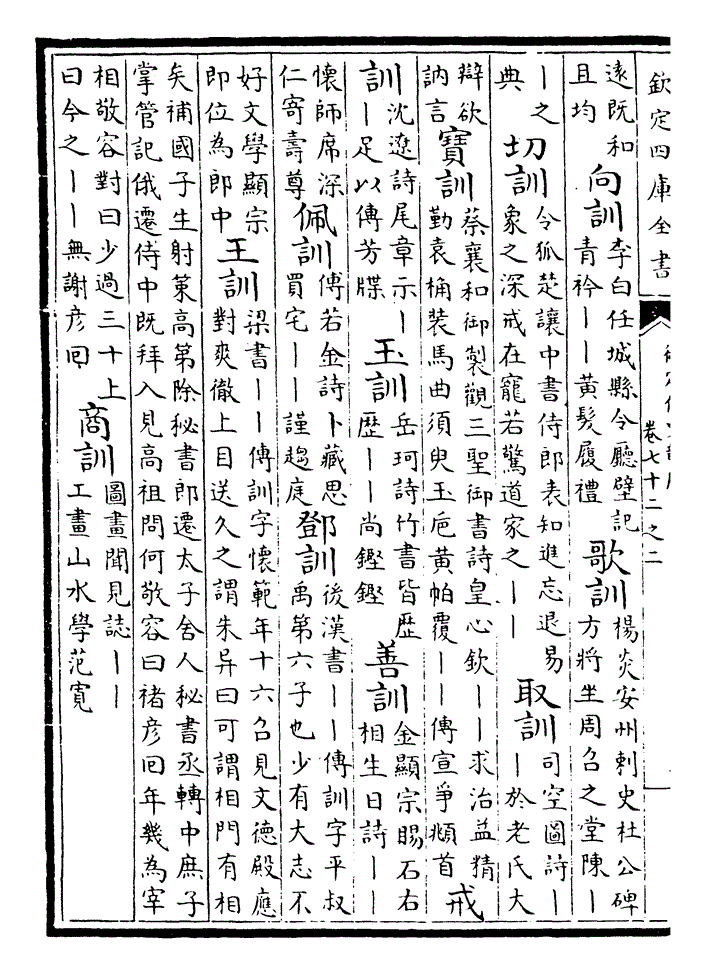 欽定四庫全書
卷七十二之二
遠既和
且均
向訓
李白任城縣令廳壁記
青衿｜｜黃髮履禮
歌訓
楊炎安州刺史杜公碑
方將坐周召之堂陳｜
｜之
典
切訓
令狐楚讓中書侍郎表知進忘退易
象之深戒在寵若驚道家之｜｜
取訓
司空圖詩｜
｜於老氏大
辯欲
訥言
寶訓
蔡襄和御製觀三聖御書詩皇心欽｜｜求治益精
勤袁桷裝馬曲須臾玉卮黃帕覆｜｜傳宣爭頫首
戒
訓
沈遼詩尾章示｜
｜足以傳芳牒
玉訓
岳珂詩竹書皆歷
歷｜｜尚鏗鏗
善訓
金顯宗賜石右
相生日詩｜｜
懷師席深
仁寄壽尊
佩訓
傅若金詩卜藏思
買宅｜｜謹趨庭
鄧訓
後漢書｜｜傳訓字平叔
禹第六子也少有大志不
好文學顯宗
即位為郎中
王訓
梁書｜｜傳訓字懷範年十六召見文德殿應
對爽徹上目送久之謂朱异曰可謂相門有相
矣補國子生射策高第除秘書郎遷太子舍人秘書丞轉中庶子
掌管記俄遷侍中既拜入見高祖問何敬容曰褚彥回年幾為宰
相敬容對曰少過三十上
曰今之｜｜無謝彥回
商訓
圖畫聞見誌｜｜
工畫山水學范寬